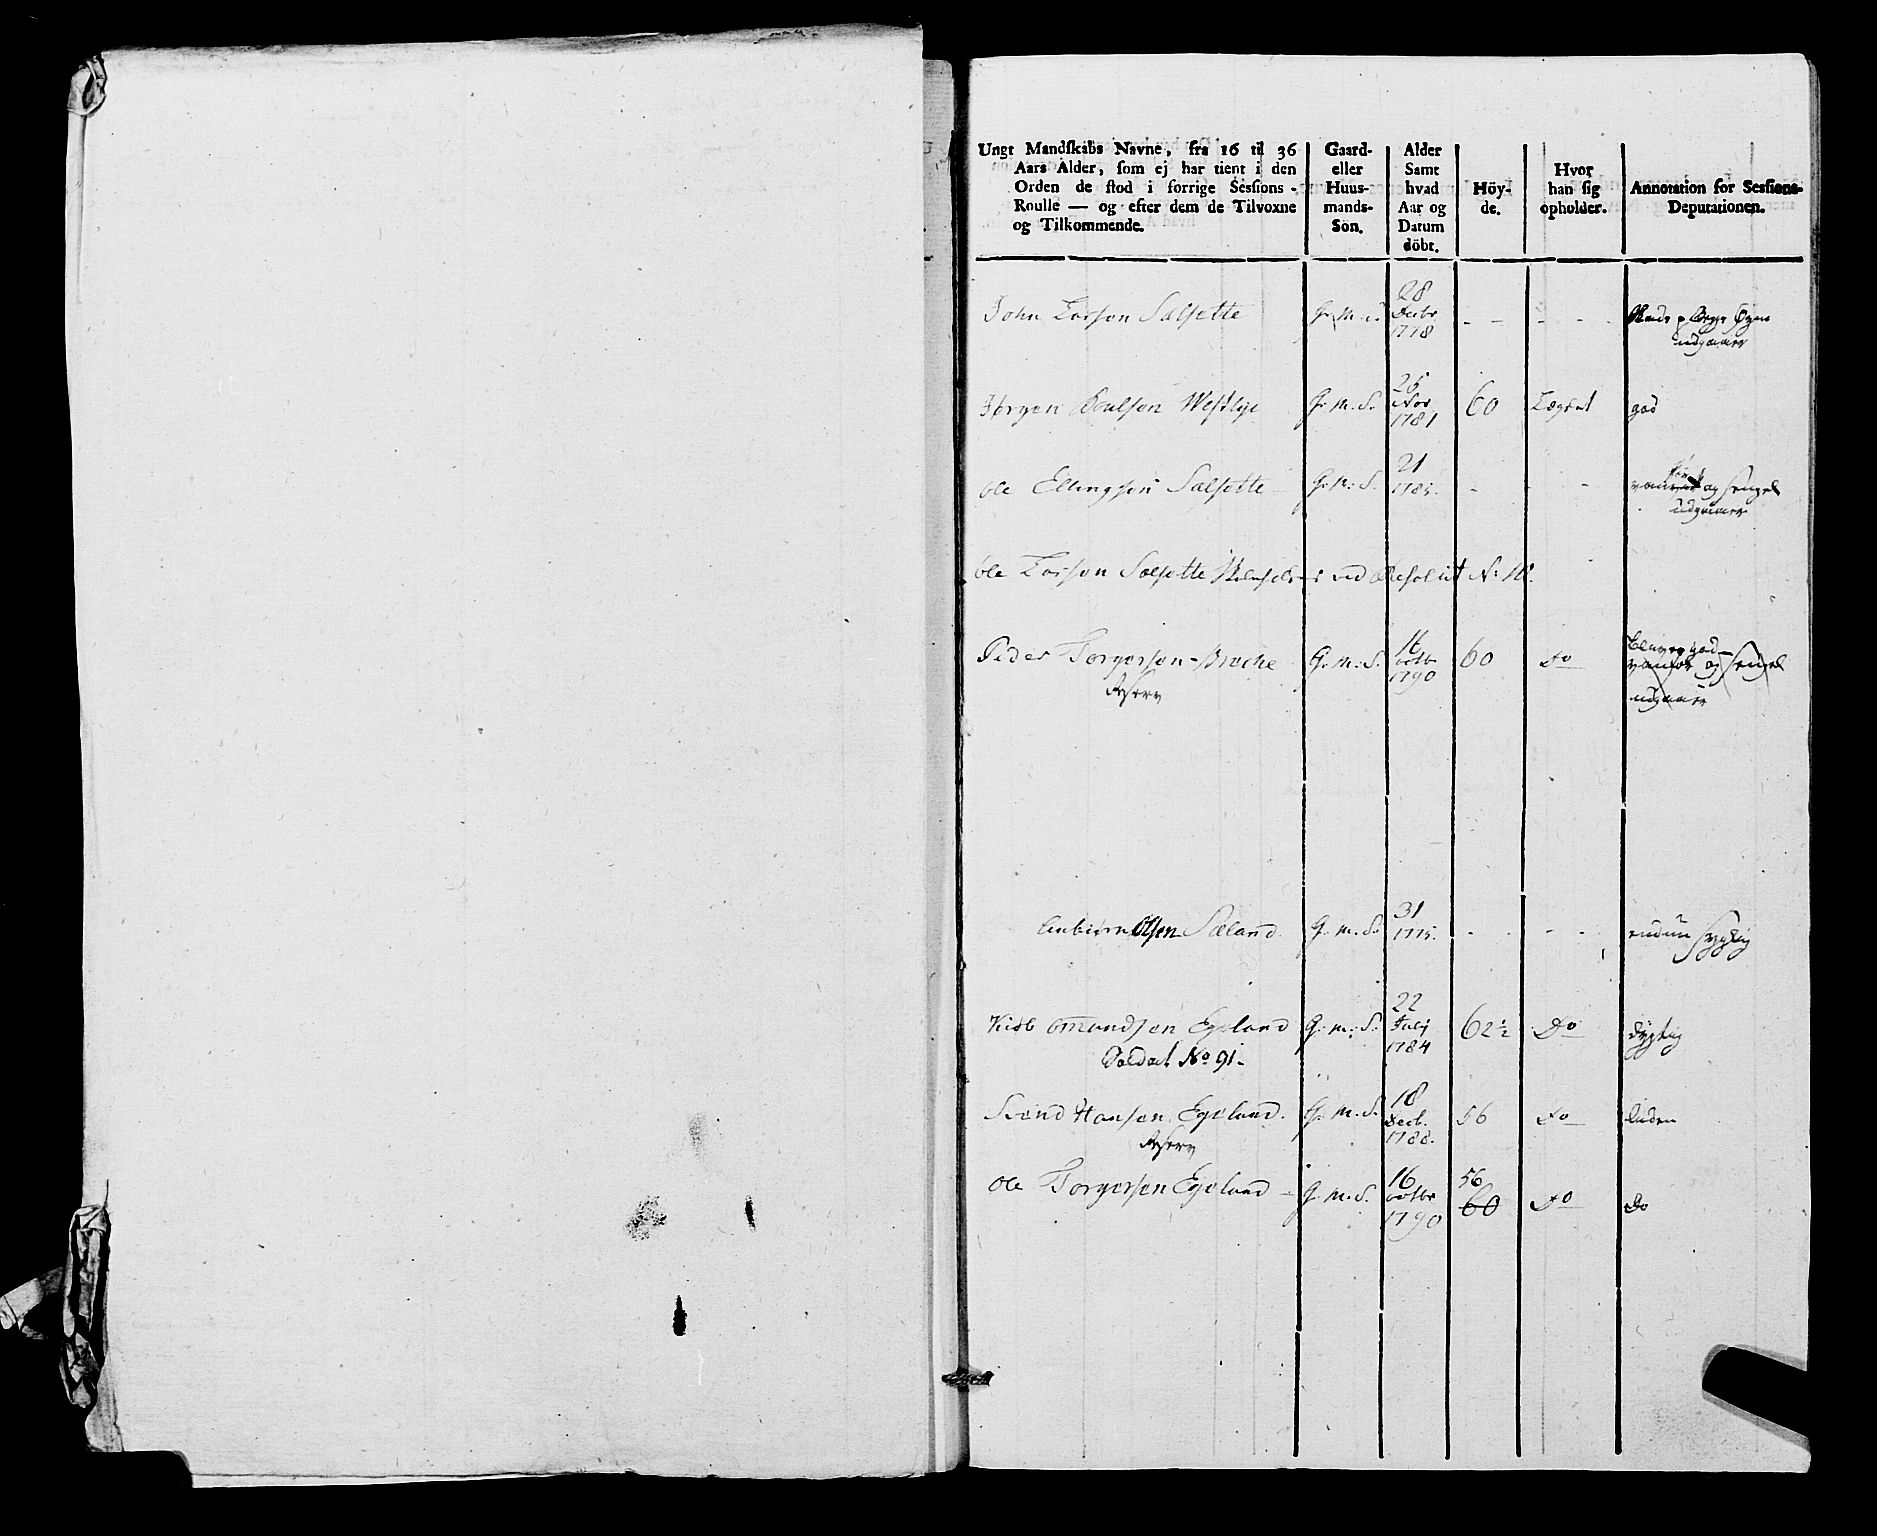 Ungt Mandskabs Navne, fra 16 til 36
Aars Alder, som ej har tient i den
Orden de stod i forrige Sessions-
Roulle — og efter dem de Tilvoxne
og Tilkommende.
Gaard-
eller
Huus-
mands-
Sön.
Alder
Samt
hvad
Aar og
Datum
döbt.
Höy-
de.
Hvor
han sig
opholder.
Annotation for Sessions-
Deputationen.
John Larsen Salsette G. M. S. 28 Decbr 1778 - - - -
udgaaer
Jørgen Poulsen Westlye G. M. S. 25 Nov 1781 60 Lægdet god
Ole Ellingsen Salsette G. M. S. 21 1785. - - -
udgaaer
Ole Larsen Salsette ved Resolut No
Peder Torgersen Broche G. M. S. 16 octbr 1790 60 Do
Reserv
udgaaer
Olsen Sæland. G. M. S. 31 1775. - - - - endnu sygelig
Omundsen Egeland G. M. S. 22 Julj 1784 62½ Do dygtig
Soldat No 91.
Svend Hansen Egeland. G. M. S. 18 Decb. 1788. 56 Do liden
Reserv
Ole Torgersen Egeland - G. M. S. 16 octbr 1790 56 60 Do Do